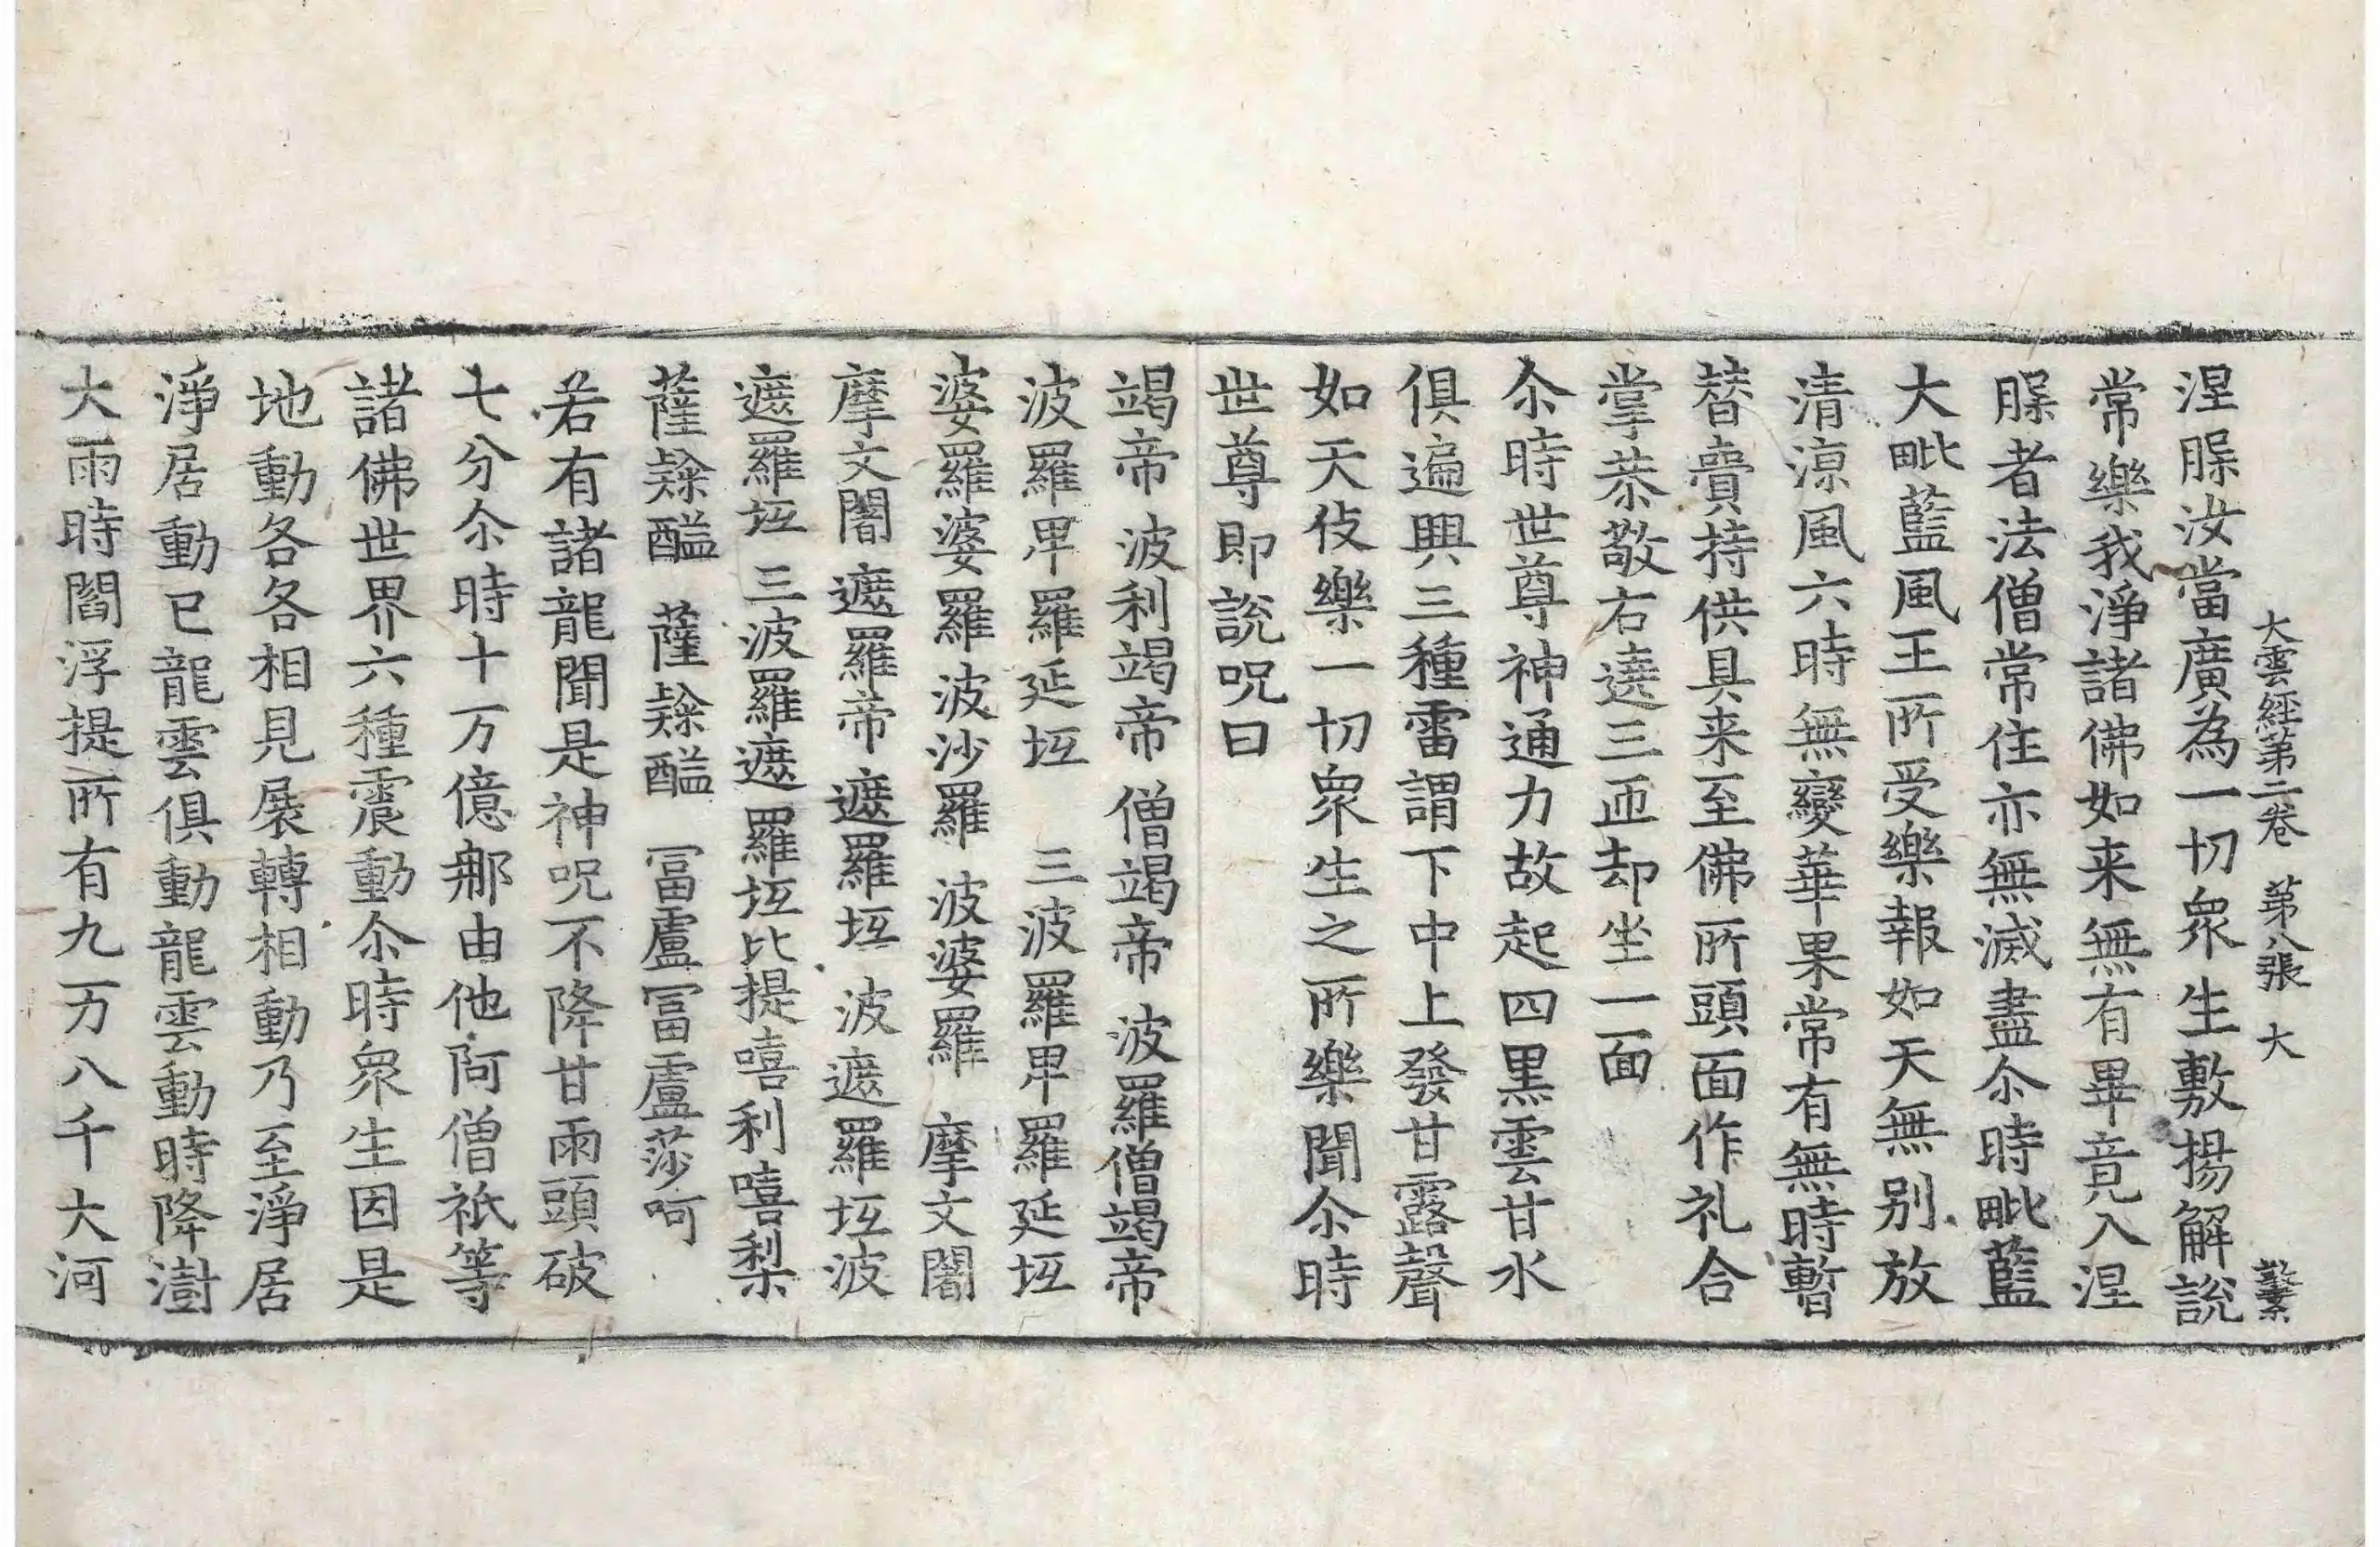 大雲經第二卷 第八張 大
涅脲汝當廣為一切衆生敷揚解說
常樂我淨諸佛如来無有畢竟入涅
脲者法僧常住亦無滅盡尒時毗藍
大毗藍風王所受樂報如天無別放
清涼風六時無變華果常有無時暫
替賷持供具来至佛所頭面作礼合
掌恭敬右遶三匝却坐一面
尒時世尊神通力故起四黒雲甘水
俱遍興三種雷謂下中上發甘露聲
如天伎樂一切衆生之所樂聞尒時
世尊即說呪曰
竭帝 波利竭帝 僧竭帝 波羅僧竭帝
波羅卑羅延坘 三波羅卑羅延坘
婆羅婆羅 波沙羅 波婆羅 摩文闍
摩文闍 遮羅帝 遮羅坘 波遮羅坘波
遮羅坘 三波羅遮羅坘比提嘻利嘻梨
薩隸醯 薩隸醯 冨盧冨盧莎呵
若有諸龍聞是神呪不降甘雨頭破
七分尒時十万億那由他阿僧祇等
諸佛世界六種震動尒時衆生因是
地動各各相見展轉相動乃至淨居
淨居動已龍雲俱動龍雲動時降澍
大雨時閻浮提所有九万八千大河